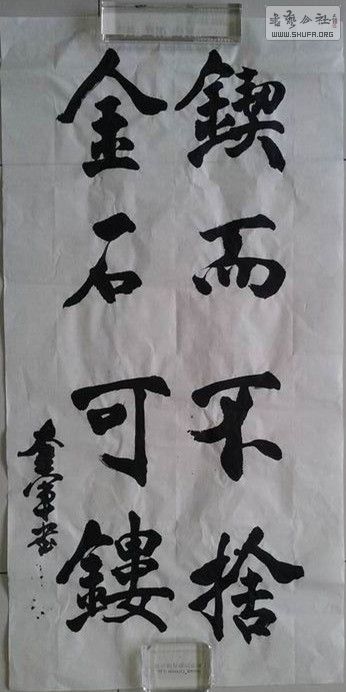 鍥而不捨
金石可鏤
書藝公社
WWW.SHUFA.ORG